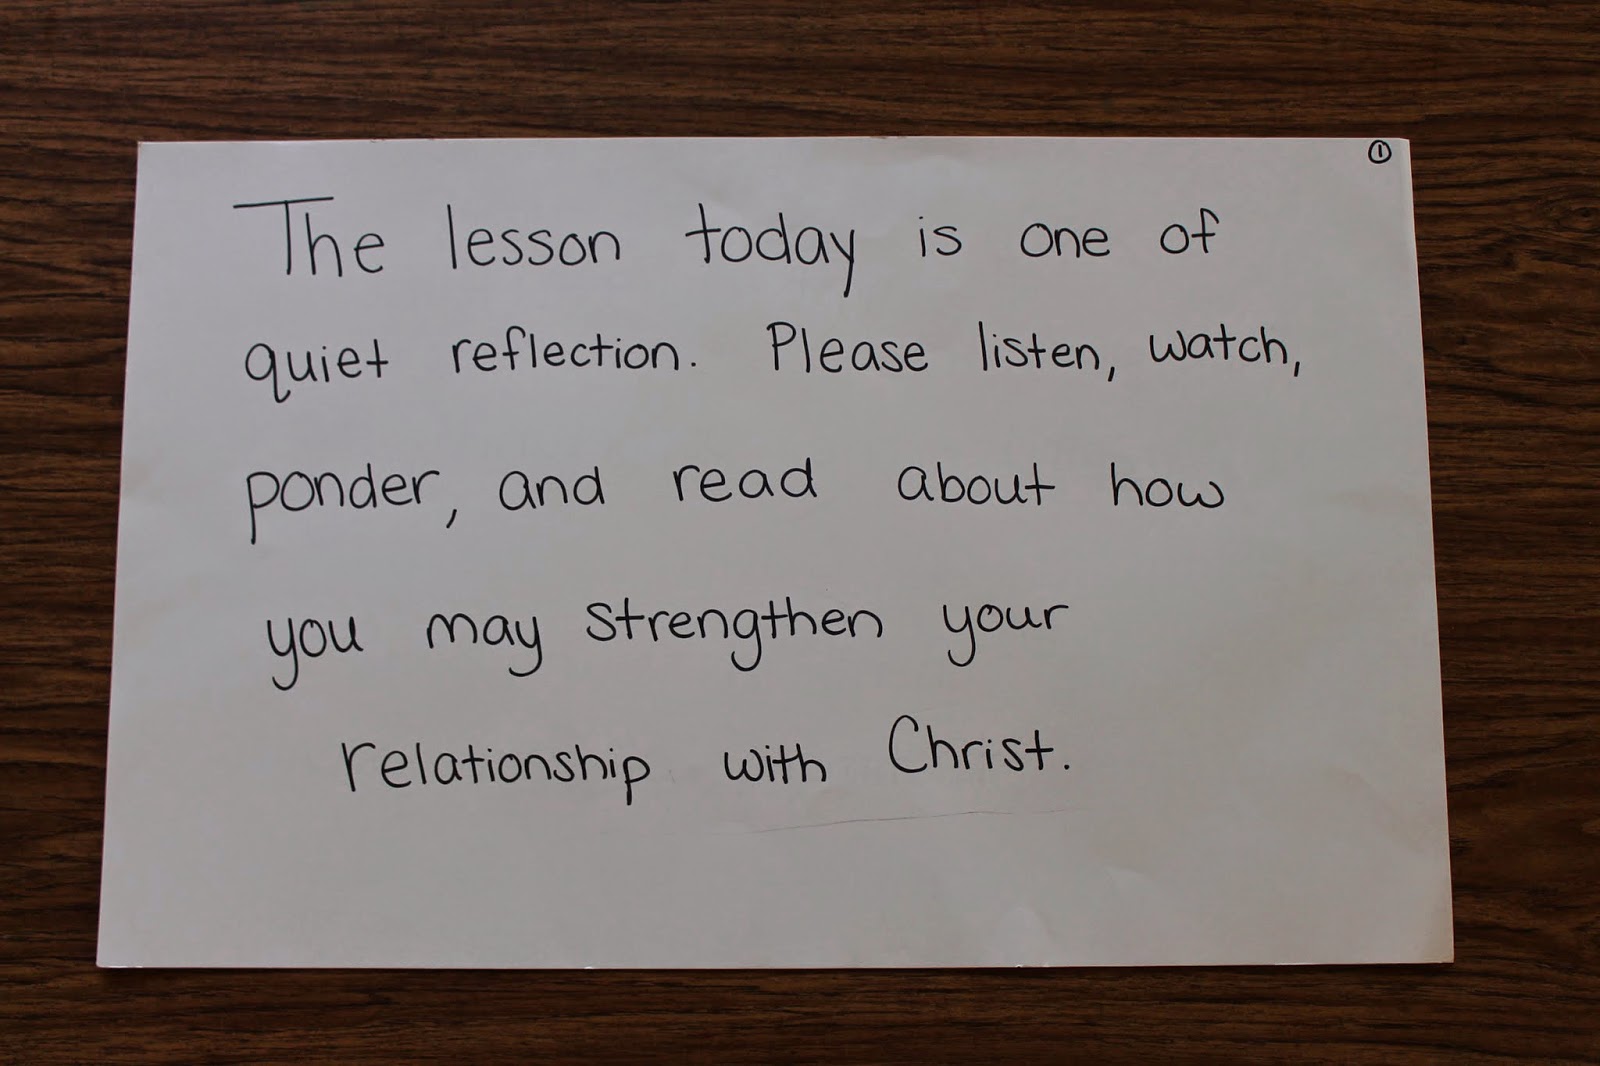 ①
The lesson today is one of
quiet reflection. Please listen, watch,
ponder, and read about how
you may strengthen your
relationship with Christ.